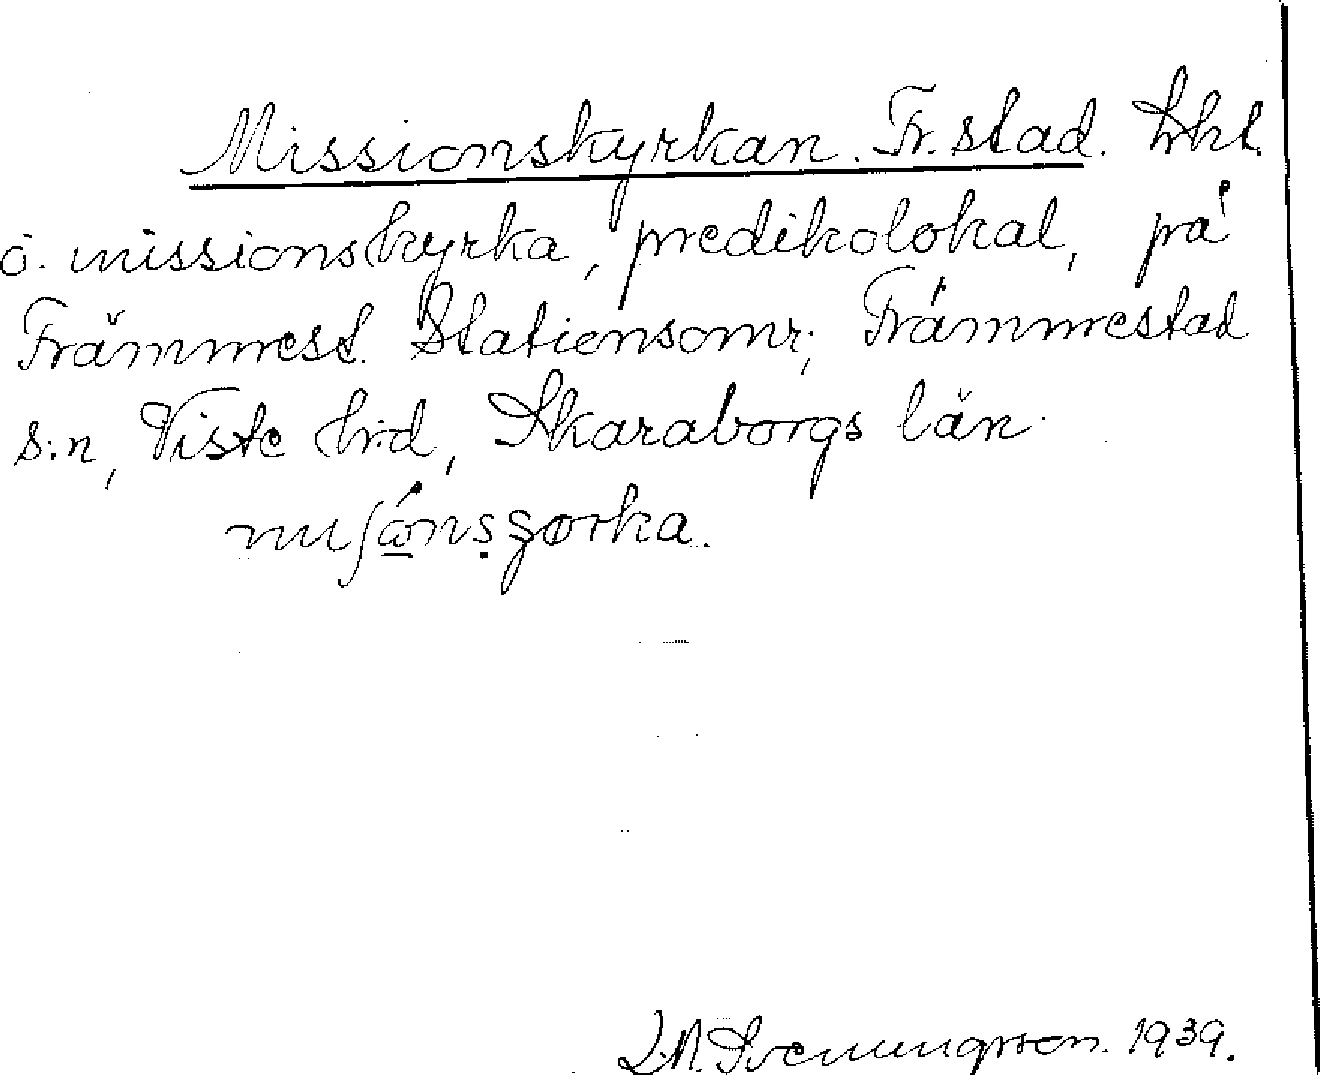 Missionskyrkan. Fr.stad. Lrkl.
o. missionskyrka, predikolokal, på
Främmest. Stationsomr; Främmestad
s:n, Viste h:d, Skaraborgs län
Svenungsson. 1939.